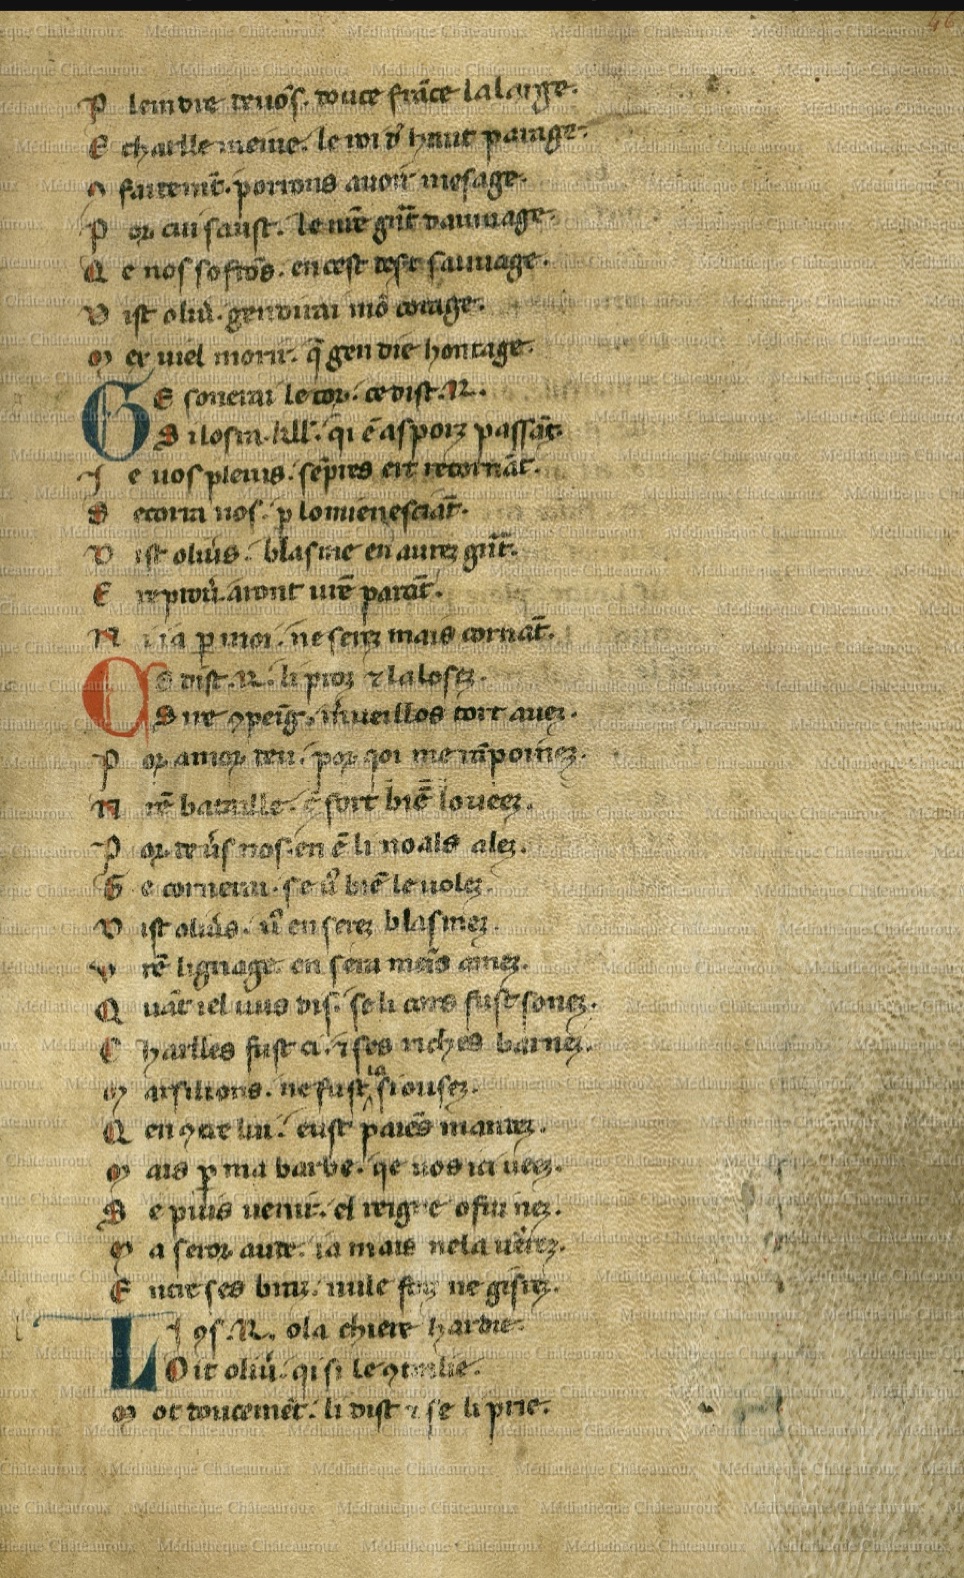 P leindre deuōs. douce frāce la large.
E charlle meine. le roi d' haut parage.
A faitemt̄. porrons auoir mesage.
P or cui faust. le nr̄e gn̄t damage.
Q e nos sofrōs. en cest desr̄t sauuage.
D ist oliū. gen dirai mō corage.
M er uiel morir. q̄ gen die hontage.
G E sonerai le cor. ce dist .R.
S i lo fra .kll'. qi ē as porz passāt.
I e uos pleuis. senpres ert retornāt.
S ecorra nos. p lo mien esciāt.
D ist oliūs. blasme en aurez gn̄t.
E repiou. aront ur̄e parāt.
N i ia p moi. ne serez mais cornāt.
C E dist .R. li proz ⁊ la losez.
S ire ꝯpeīg. m̄ueillos tort auez.
P or amor deu. por qoi me rāponez.
N r̄e bataille. ē fort biē louees.
P or deūs nos. en ē li noals alez.
G e cornerai. se ū biē le uolez.
D ist oliūs. ū en serez blasmez.
V r̄e lignage. en sera meīs amez.
Q uāt iel uus dis. se li corns fust sonez.
C harlles fust ci. ⁊ ses riches barnez.
M arsilions. ne fust la si ousez.
Q en ꝯtre lui. eust paiēs mandez.
M ais p ma barbe. qe uos ici ueez.
S e puis uenir. el reigne o fui nez.
M a seror aude. ia mais ne la uerez.
E ntre ses braz. nule foiz ne gisrez.
L I ꝯs .R. o la chiere hardie.
O it oliū. qi si le ꝯtralie.
M ot doucemēt. li dist ⁊ se li prie.